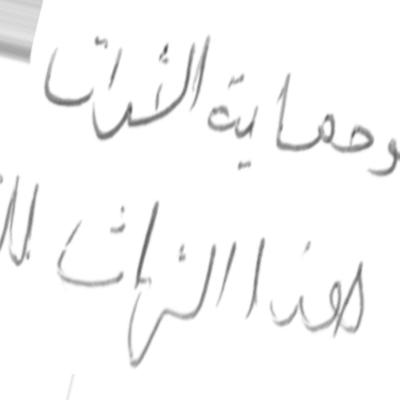 وحماية الأداث
لهذا التراث لل